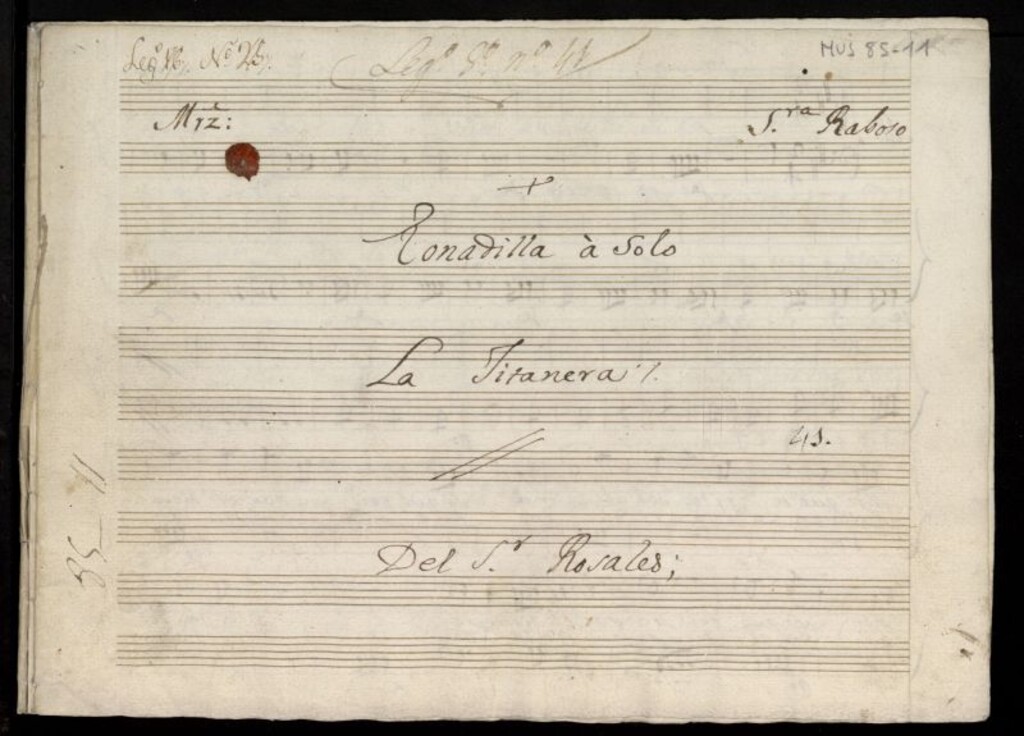 Leg.º 16, N.º 23,
Leg.º 5.º n.º 41
MUS 85-11
Mrz:
S.ra Raboso
+
Tonadilla à Solo
La Jitanera
45.
Del S.r Rosales;
85-11